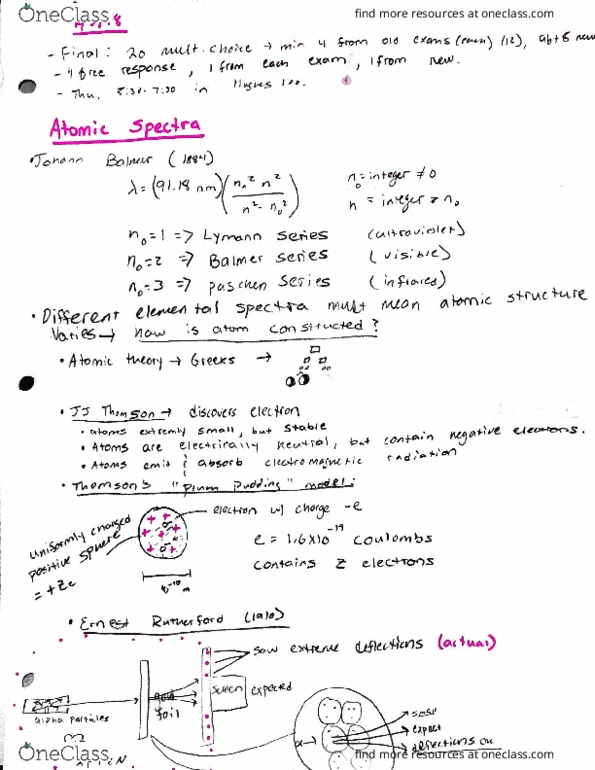 OneClass
find more resources at oneclass.com
- Final: 20 mult. choice → min 4 from old exams (each) (12), 8 new
- 4 free response, 1 from each exam, 1 from new.
- Thu. 5:30-7:30 in Hughes 100.
Atomic Spectra
• Johann Balmer (1884)
λ = (91.18 nm) (n₀² n² / n² - n₀²)
n₀ = integer ≠ 0
n = integer ≠ n₀
n₀=1 => Lymann Series (ultraviolet)
n₀=2 => Balmer series (visible)
n₀=3 => paschen series (infrared)
• Different elemental spectra mult mean atomic structure
varies → how is atom constucted?
• Atomic theory → Greeks →
• JJ Thomson → discovers electron
• atoms extremly small, but stable
• Atoms are electrically neutral, but contain negative electrons.
• Atoms emit & absorb electromagnetic radiation
• Thomson's "plum pudding" model:
electron w/ charge -e
uniformly charged
positive sphere
= +Ze
e = 1.6x10⁻¹⁹ coulombs
contains Z electrons
10⁻¹⁰ m
• Ernest Rutherford (1910)
saw extreme deflections (actual)
screen expected
gold
foil
alpha particles
α→
small
expect
deflections on
OneClass
find more resources at oneclass.com